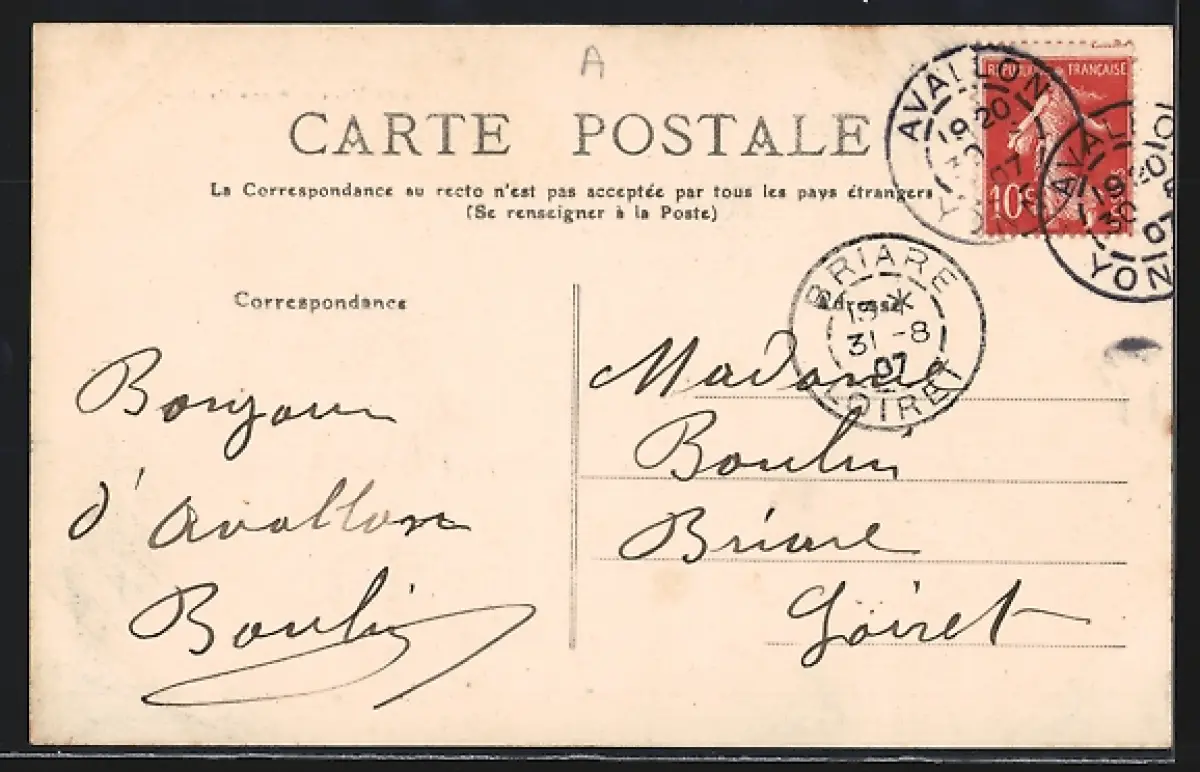 A
CARTE POSTALE
La Correspondance au recto n'est pas acceptée par tous les pays étrangers
(Se renseigner à la Poste)
REPUBLIQUE FRANÇAISE
10c
AVALLON
19 20
30
07
YONNE
AVALLON
19 20
30
07
YONNE
BRIARE
31 -8
07
LOIRET
Correspondance
Adresse
Bonjour
d'Avallon
Boulin
Madame
Boulin
Briare
Loiret